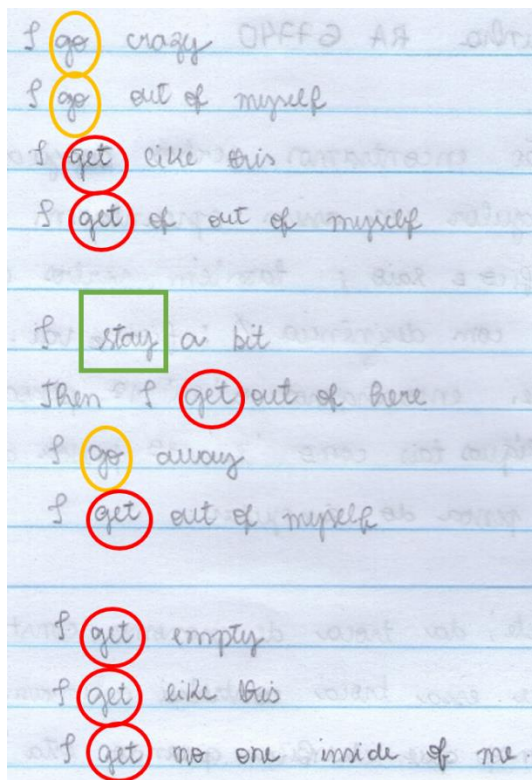 I go crazy
I go out of myself
I get like this
I get of out of myself
I stay a bit
Then I get out of here
I go away
I get out of myself
I get empty
I get like this
I get no one inside of me.